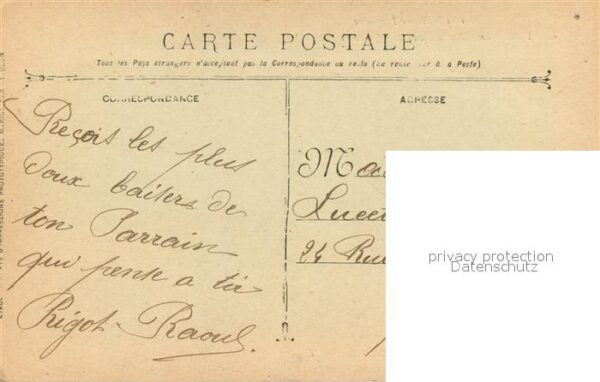 CARTE POSTALE
Tous les Pays étrangers n'acceptent pas la Correspondance au recto (Se renseigner à la Poste)
CORRESPONDANCE
ADRESSE
Reçois les plus
doux baisers de
ton Parrain
qui pense a toi
Rigot Raoul.
24 Rue
privacy protection
Datenschutz